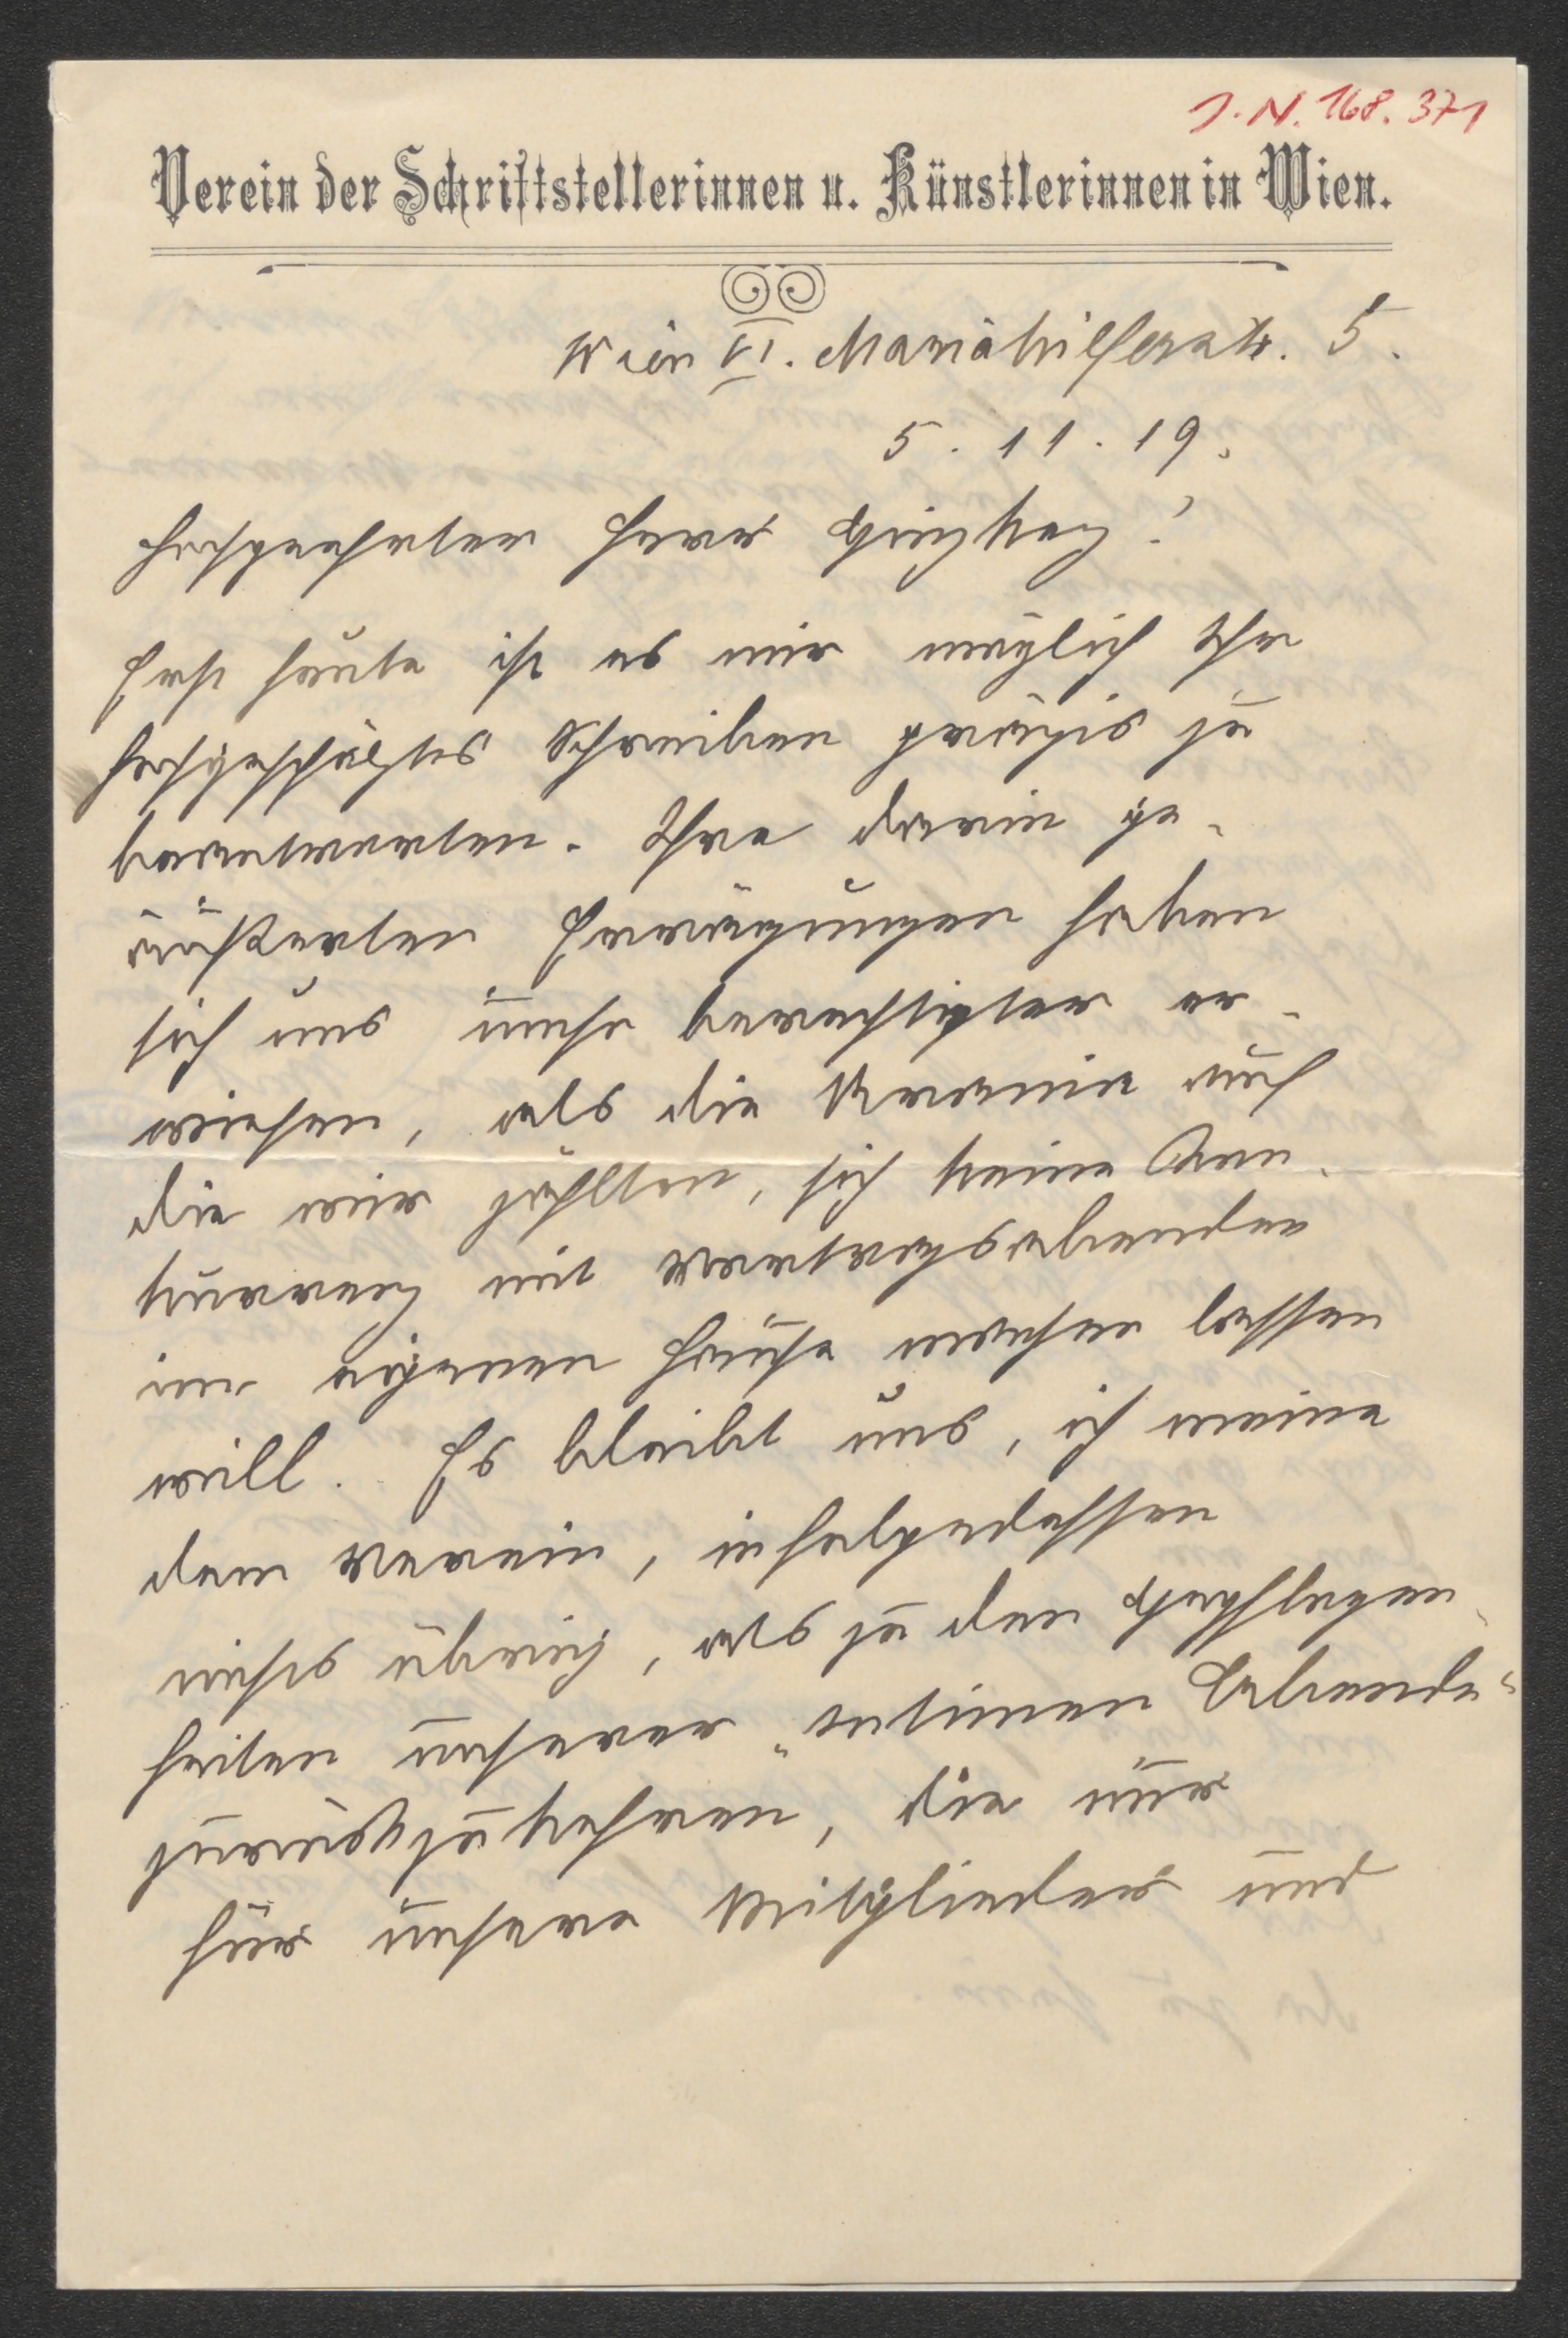 J. N. 168.371
Verein der Schriftstellerinnen u. Künstlerinnen in Wien.
Wien VI. Mariahilferstr. 5.
5. 11. 19.
Hochgeehrter Herr Ginzkey!
Erst heute ist es mir möglich Ihr
hochgeschätztes Schreiben präzis zu
beantworten. Ihre darin ge-
äußerten Erwägungen haben
sich uns umso berechtigter er-
wiesen, als die Urania auf
die wir zählten, sich keine Con-
kurrenz mit Vortragsabenden
im eigenen Hause machen lassen
will. Es bleibt uns, ich meine
dem Verein, infolgedessen
nichts übrig, als zu den Gepflogen-
heiten unserer „intimen Abende“
zurückzukehren, die nur
für unsere Mitglieder und